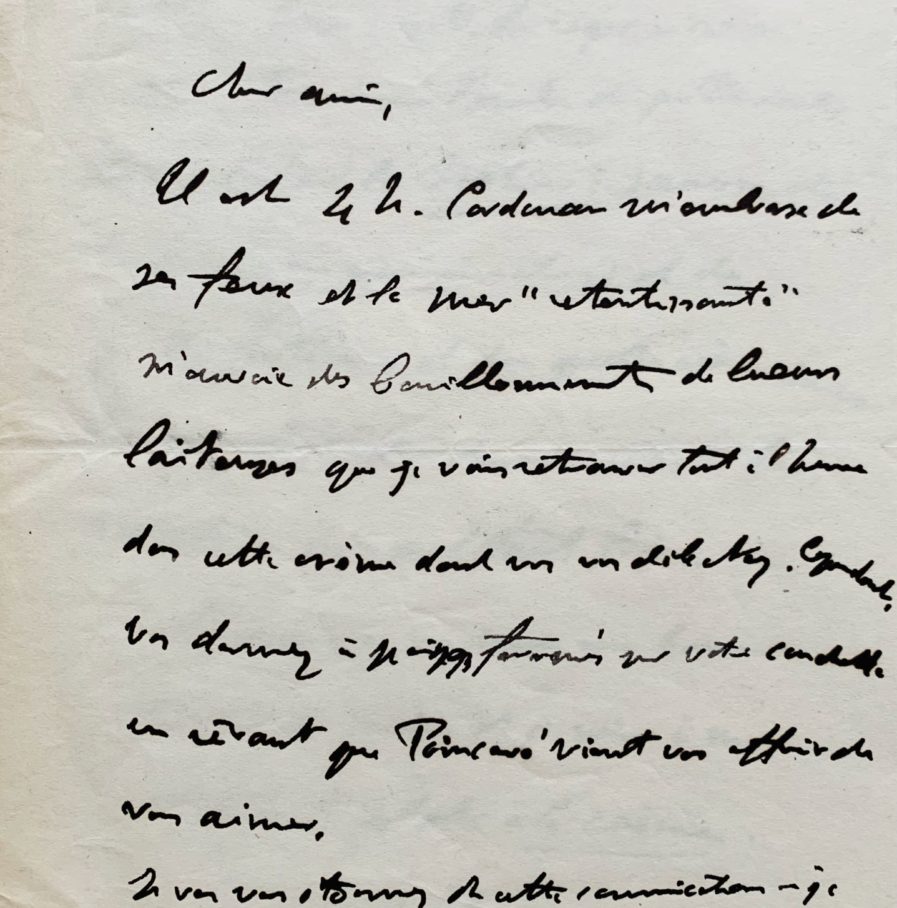 Cher ami,
Il est 4 h. Cardouan m'embrase de
ses feux et la mer "retentissante"
m'envoie des bouillonnements de lueurs
laiteuses que je vais retrouver tout à l'heure
dans cette crème dont vous vous délectez. Cependant,
vous dormez à poings fermés sur votre
en rêvant que Poincaré vient vous offrir de
vous aimer.
Si vous vous étonnez de cette communication – je